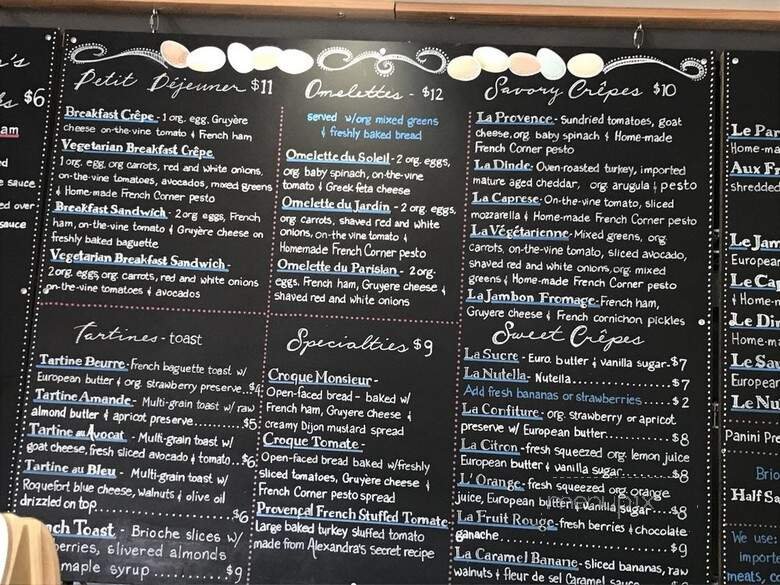 's
s $6
am
ed
e sauce
ed over
sauce
Petit Déjeuner $11
Breakfast Crêpe - 1 org. egg, Gruyère
cheese on-the-vine tomato & French ham
Vegetarian Breakfast Crêpe
1 org. egg, org carrots, red and white onions,
on-the-vine tomatoes, avocados, mixed greens
& Home-made French Corner pesto
Breakfast Sandwich - 2 org eggs, French
ham, on-the-vine tomato & Gruyère cheese on
freshly baked baguette
Vegetarian Breakfast Sandwich
2 org. eggs, org. carrots, red and white onions
on-the-vine tomatoes & avocados
Tartines - toast
Tartine Beurre - French baguette toast w/
European butter & org. strawberry preserve...$4
Tartine Amande - Multi-grain toast w/ raw
almond butter & apricot preserve..........$5
Tartine au Avocat - Multi-grain toast w/
goat cheese, fresh sliced avocado & tomato...$6
Tartine au Bleu - Multi-grain toast w/
Roquefort blue cheese, walnuts & olive oil
drizzled on top..........$6
nch Toast - Brioche slices w/
berries, slivered almonds
maple syrup..........$9
Omelettes - $12
served w/org mixed greens
& freshly baked bread
Omelette du Soleil - 2 org. eggs,
org. baby spinach, on-the-vine
tomato & Greek feta cheese
Omelette du Jardin - 2 org. eggs,
org carrots, shaved red and white
onions, on-the vine tomato &
Homemade French Corner pesto
Omelette du Parisian - 2 org.
eggs, French ham, Gruyere cheese &
shaved red and white onions
Specialties $9
Croque Monsieur -
Open-faced bread - baked w/
French ham, Gruyere cheese &
creamy Dijon mustard spread
Croque Tomate -
Open-faced bread baked w/freshly
sliced tomatoes, Gruyere cheese &
French Corner pesto spread
Provençal French Stuffed Tomate
Large baked turkey stuffed tomato
made from Alexandra's secret recipe
Savory Crêpes $10
La Provence - Sundried tomatoes, goat
cheese, org. baby spinach & Home-made
French Corner pesto
La Dinde - Oven-roasted turkey, imported
mature aged cheddar, org arugula & pesto
La Caprese - On-the-vine tomato, sliced
mozzarella & Home-made French Corner pesto
La Végétarienne - Mixed greens, org
carrots, on-the-vine tomato, sliced avocado,
shaved red and white onions, org. mixed
greens & Home-made French Corner pesto
La Jambon Fromage - French ham,
Gruyère cheese & French cornichon pickles
Sweet Crêpes
La Sucre - Euro. butter & vanilla sugar-$7
La Nutella - Nutella..........$7
Add fresh bananas or strawberries......$2
La Confiture - org. strawberry or apricot
preserve w/ European butter..........$8
La Citron - fresh squeezed org. lemon juice
European butter & vanilla sugar........$8
L'Orange - fresh squeezed org orange
juice, European butter & vanilla sugar....$8
La Fruit Rouge - fresh berries & chocolate
ganache..........$9
La Caramel Banane - sliced bananas, raw
walnuts & fleur de sel Caramel sauce
Le Par
Home-ma
Aux Fr
shredded
Le Jam
European
Le Cap
& Home-m
Le Din
Home-ma
Le Sau
European
Le Nu
Panini Pr
Brio
Half Sa
We use:
importe
meats, c